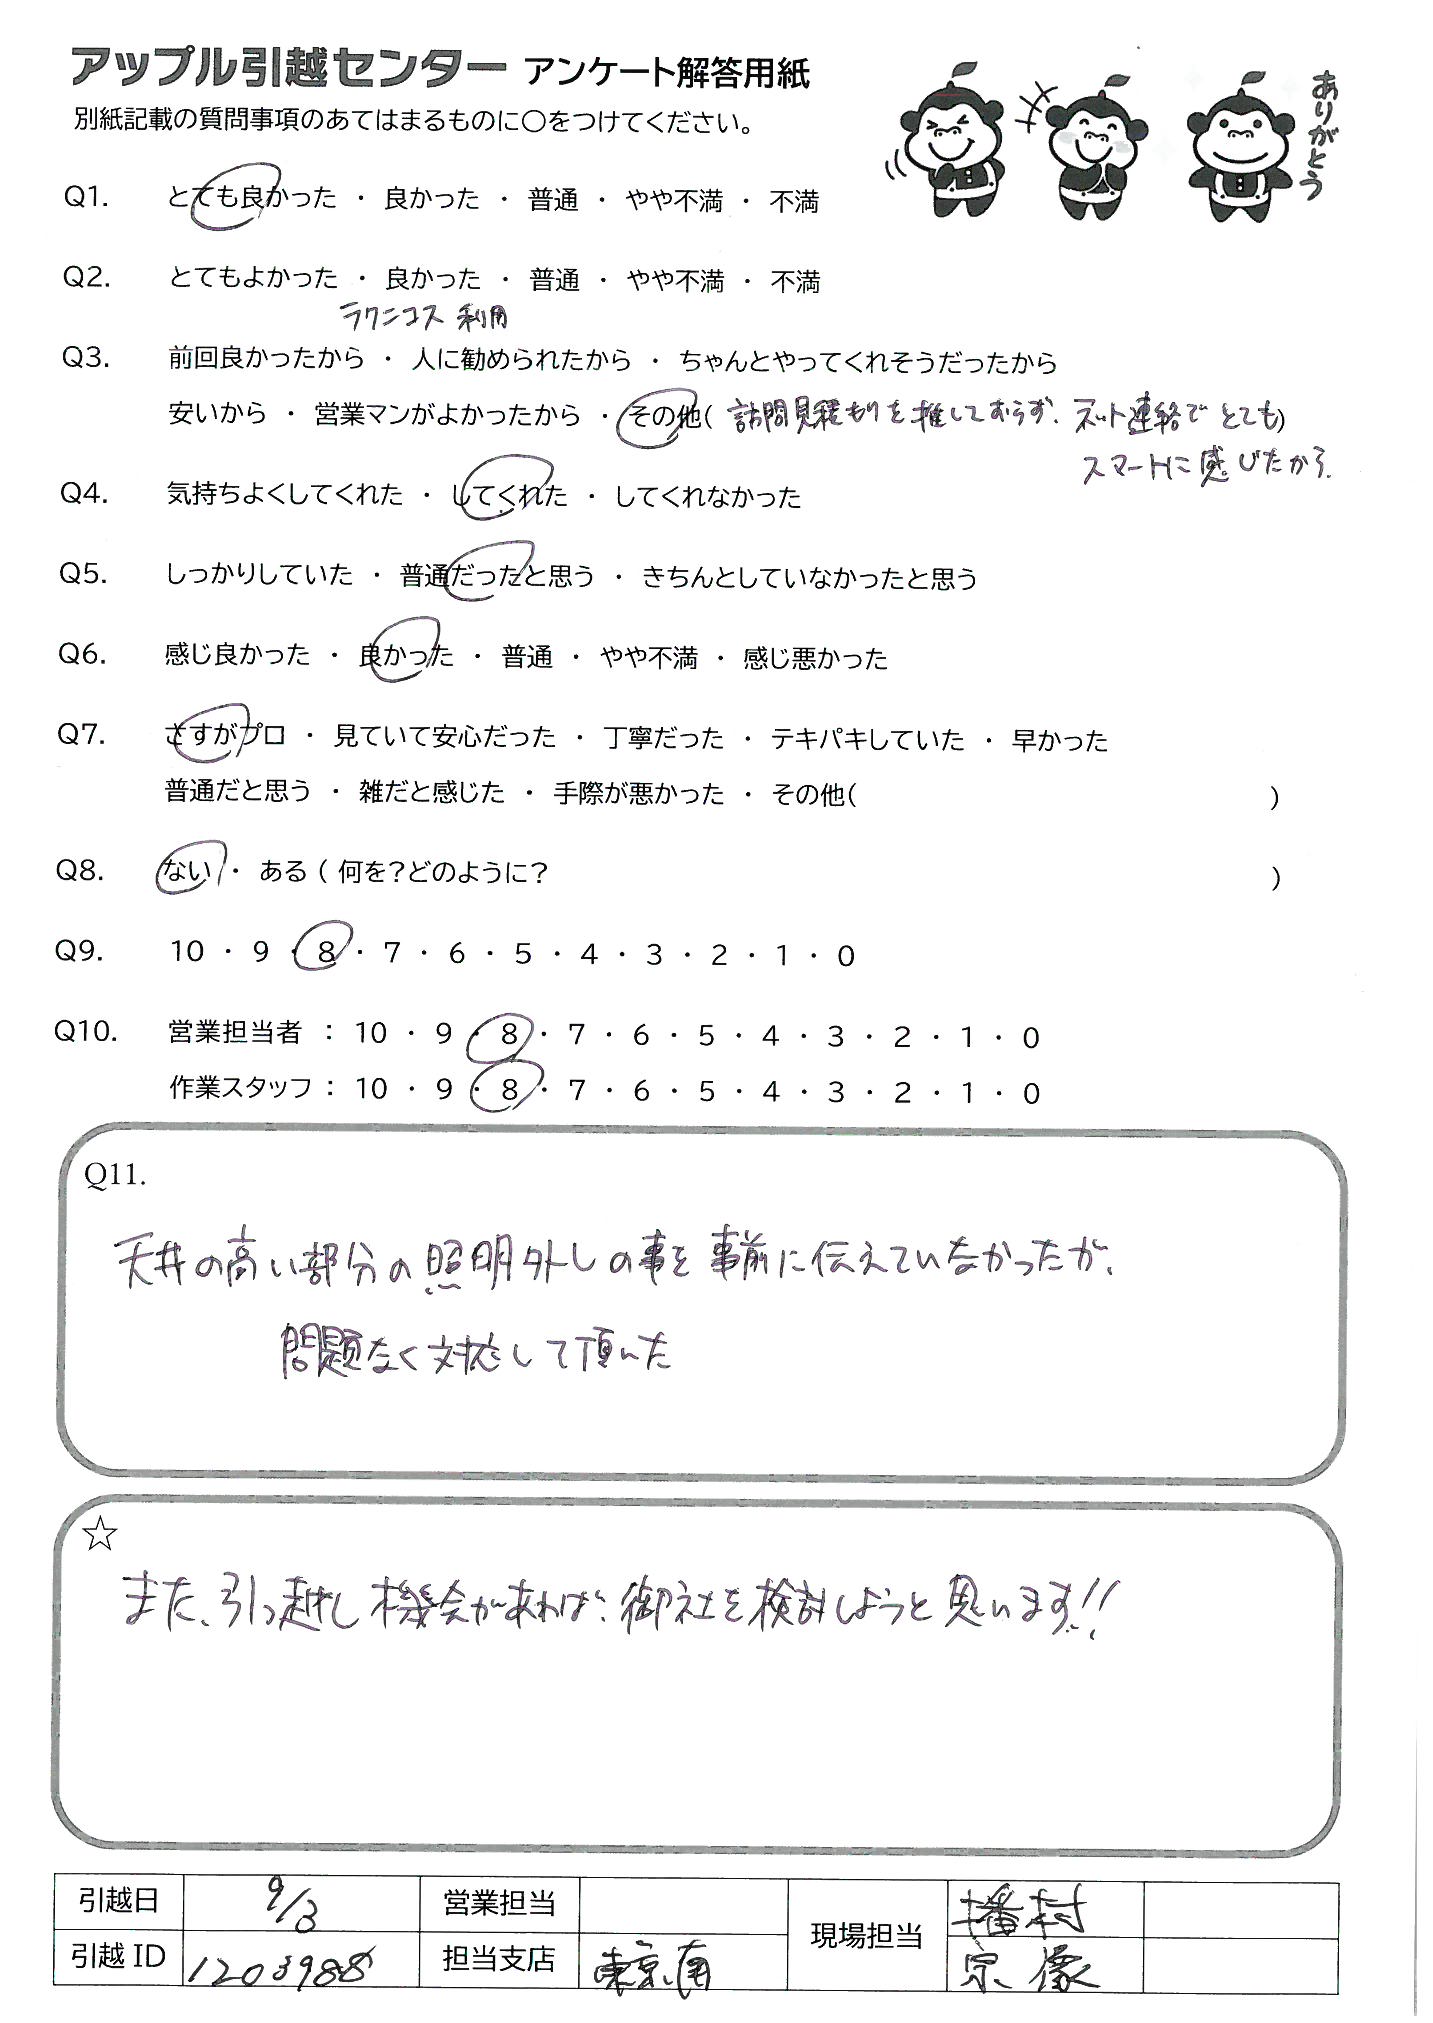 アップル引越センター アンケート解答用紙
別紙記載の質問事項のあてはまるものに〇をつけてください。
ありがとう
Q1. とても良かった ・ 良かった ・ 普通 ・ やや不満 ・ 不満
Q2. とてもよかった ・ 良かった ・ 普通 ・ やや不満 ・ 不満
ラクニコス 利用
Q3. 前回良かったから ・ 人に勧められたから ・ ちゃんとやってくれそうだったから
安いから ・ 営業マンがよかったから ・ その他( 訪問見積もりを推しておらず、ネット連絡でとても)
スマートに感じたから.
Q4. 気持ちよくしてくれた ・ してくれた ・ してくれなかった
Q5. しっかりしていた ・ 普通だったと思う ・ きちんとしていなかったと思う
Q6. 感じ良かった ・ 良かった ・ 普通 ・ やや不満 ・ 感じ悪かった
Q7. さすがプロ ・ 見ていて安心だった ・ 丁寧だった ・ テキパキしていた ・ 早かった
普通だと思う ・ 雑だと感じた ・ 手際が悪かった ・ その他( )
Q8. ない ・ ある ( 何を?どのように? )
Q9. 10 ・ 9 ・ 8 ・ 7 ・ 6 ・ 5 ・ 4 ・ 3 ・ 2 ・ 1 ・ 0
Q10. 営業担当者 : 10 ・ 9 ・ 8 ・ 7 ・ 6 ・ 5 ・ 4 ・ 3 ・ 2 ・ 1 ・ 0
作業スタッフ : 10 ・ 9 ・ 8 ・ 7 ・ 6 ・ 5 ・ 4 ・ 3 ・ 2 ・ 1 ・ 0
Q11.
天井の高い部分の照明外しの事を事前に伝えていなかったが、
問題なく対応して頂いた
☆
また、引っ越し機会があれば、御社を検討しようと思います!!
引越日 9/3 営業担当 現場担当 播村
引越ID 1203988 担当支店 東京南 宗像